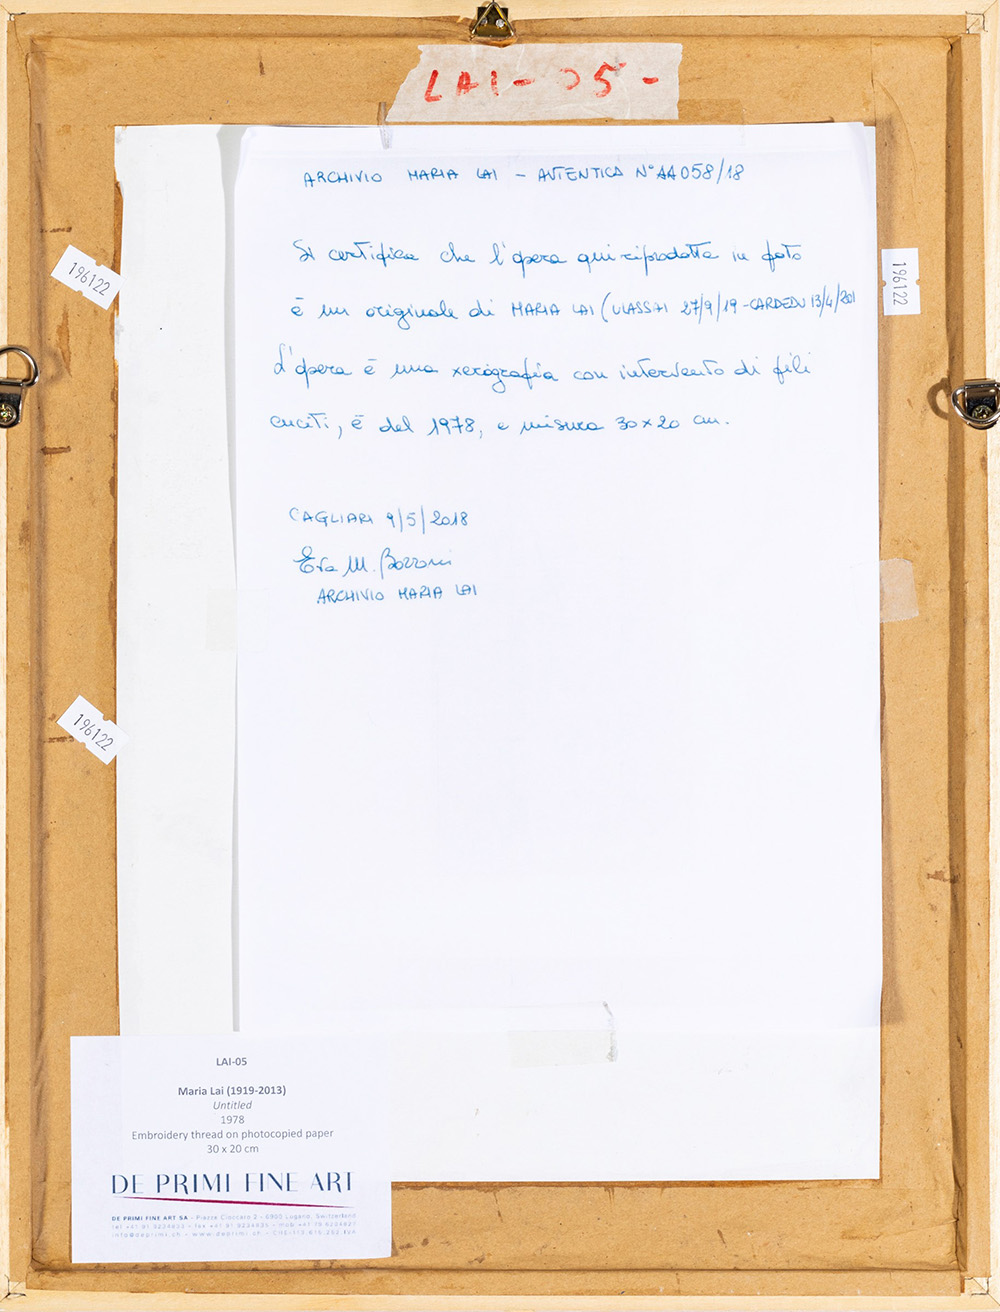 LAI-05-
ARCHIVIO MARIA LAI - AUTENTICA N° AA058/18
Si certifica che l'opera qui riprodotta in foto
è un originale di MARIA LAI (ULASSAI 27/9/19-CARDEDU 13/4/201
L'opera è una xerografia con intervento di fili
cuciti, è del 1978, e misura 30x20 cm.
CAGLIARI 9/5/2018
ARCHIVIO MARIA LAI
196122
196122
196122
LAI-05
Maria Lai (1919-2013)
Untitled
1978
Embroidery thread on photocopied paper
30 x 20 cm
DE PRIMI FINE ART
DE PRIMI FINE ART SA - Piazza Cioccaro 2 - 6900 Lugano, Switzerland
info@deprimi.ch - www.deprimi.ch